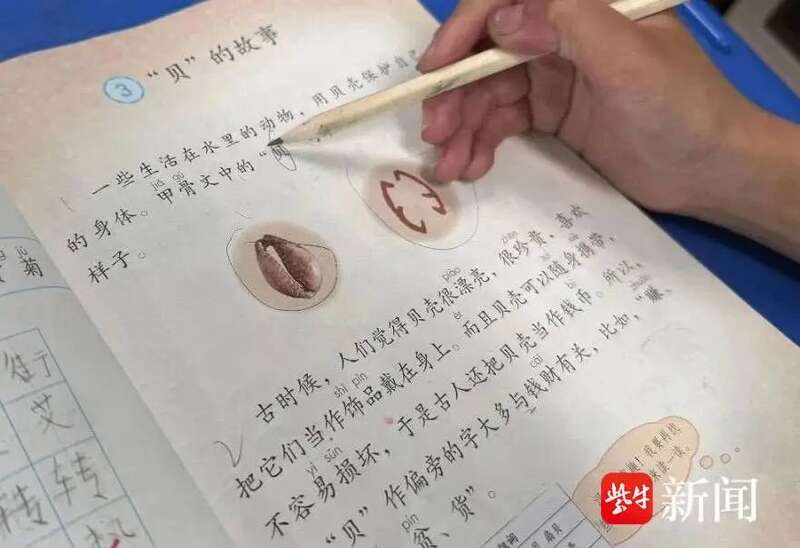 3 “贝”的故事
一些生活在水里的动物，用贝壳保护自己
jiǎ gǔ
的身体。甲骨文中的“贝
样子。
piào zhēn
古时候，人们觉得贝壳很漂亮，很珍贵，喜欢
shì pǐn dài
把它们当作饰品戴在身上。而且贝壳可以随身携带，
yì sǔn
不容易损坏，于是古人还把贝壳当作钱币。所以，
cái
“贝”作偏旁的字大多与钱财有关，比如，“赚、
pín
贫、货”。
jú
菊
街
艾
转 转
我要再找
来读一读。
紫牛新闻